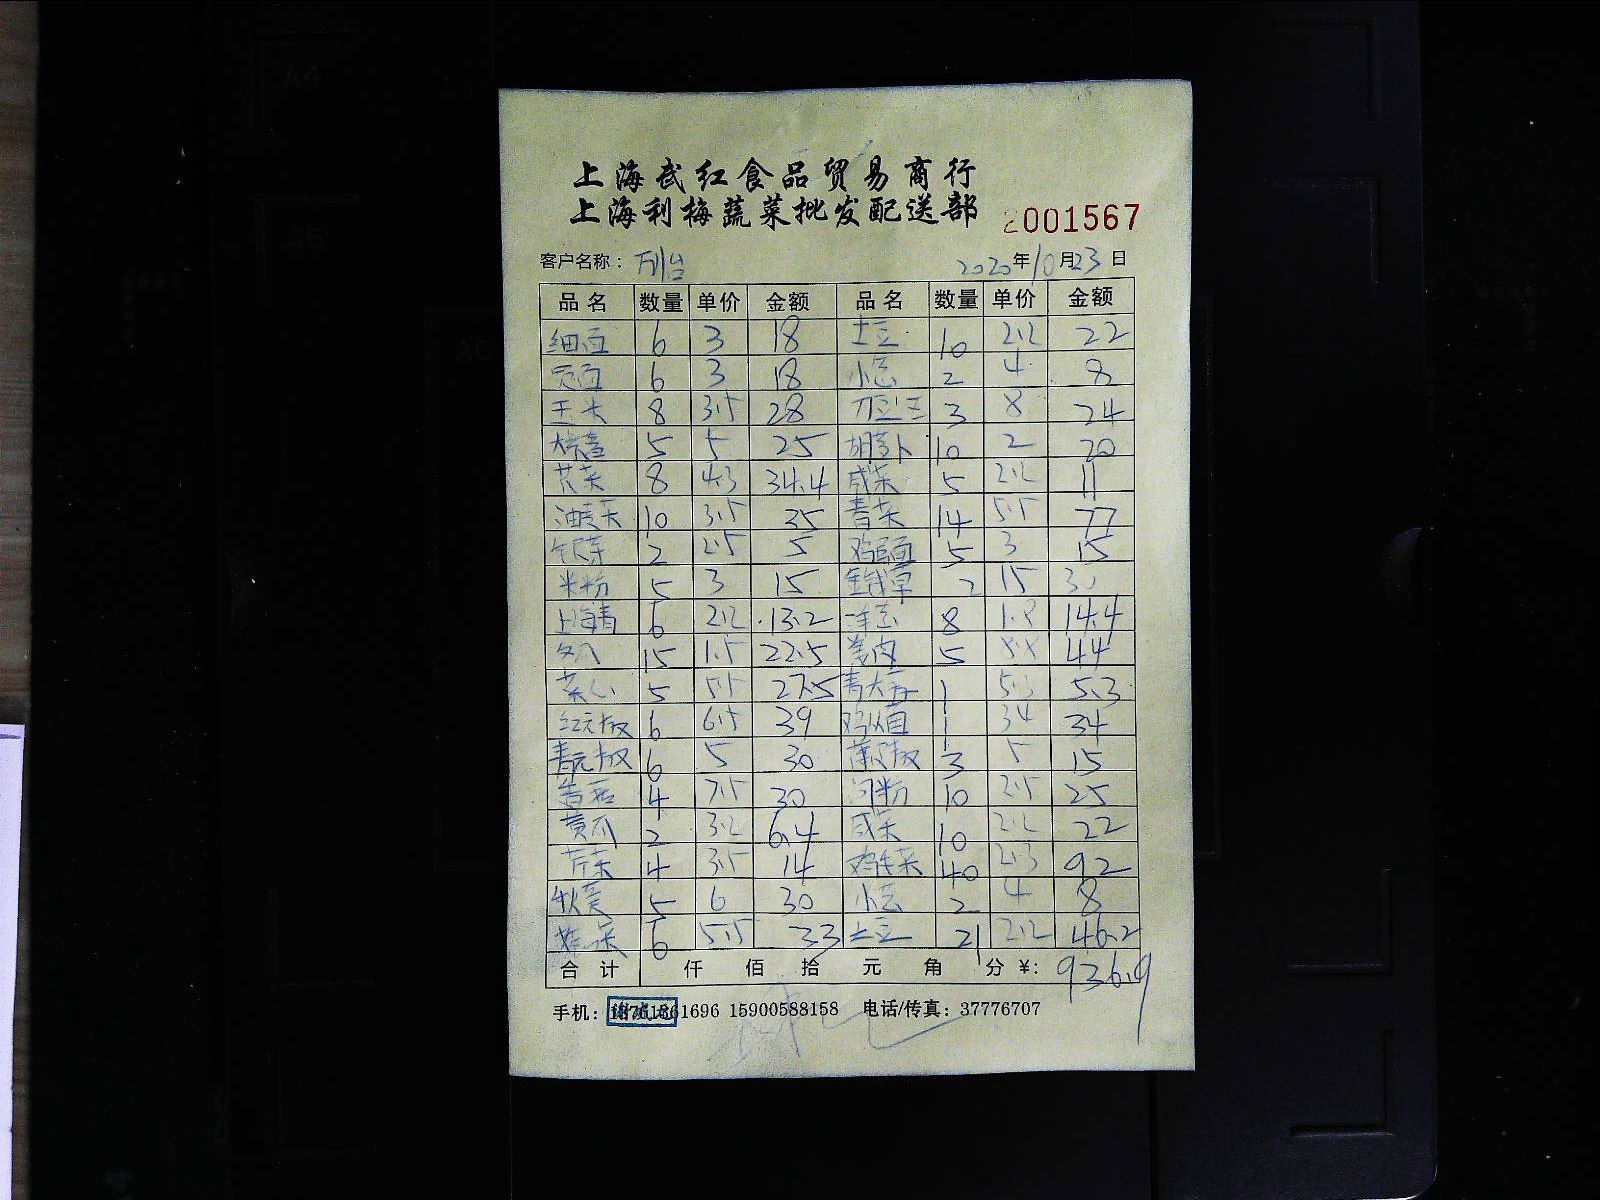 上海武红食品贸易商行
上海利梅蔬菜批发配送部
2001567
客户名称： 2020年10月23日
品名 数量 单价 金额 品名 数量 单价 金额
细面 6 3 18 土豆 10 2.2 22
宽面 6 3 18 小葱 2 4 8
8 3.5 28 刀豆 3 8 24
5 5 25 胡萝卜 10 2 20
芥菜 8 4.3 34.4 咸菜 5 2.2 11
油麦菜 10 3.5 35 青菜 14 5.5 77
银芽 2 2.5 5 鸡蛋面 5 3 15
米粉 5 3 15 金钱草 2 15 30
上海青 6 2.2 13.2 洋葱 8 1.8 14.4
冬瓜 15 1.5 22.5 姜肉 5 8.8 44
菜心 5 5.5 27.5 青大 1 5.3 5.3
红元椒 6 6.5 39 1 34 34
青元椒 6 5 30 薄皮椒 3 5 15
4 7.5 30 河粉 10 2.5 25
黄瓜 2 3.2 6.4 咸菜 10 2.2 22
芹菜 4 3.5 14 鸡毛菜 40 2.3 92
秋葵 5 6 30 小葱 2 4 8
6 5.5 33 土豆 21 2.2 46.2
合计 仟 佰 拾 元 角 分 ¥: 936.9
手机： 1696 15900588158 电话/传真：37776707